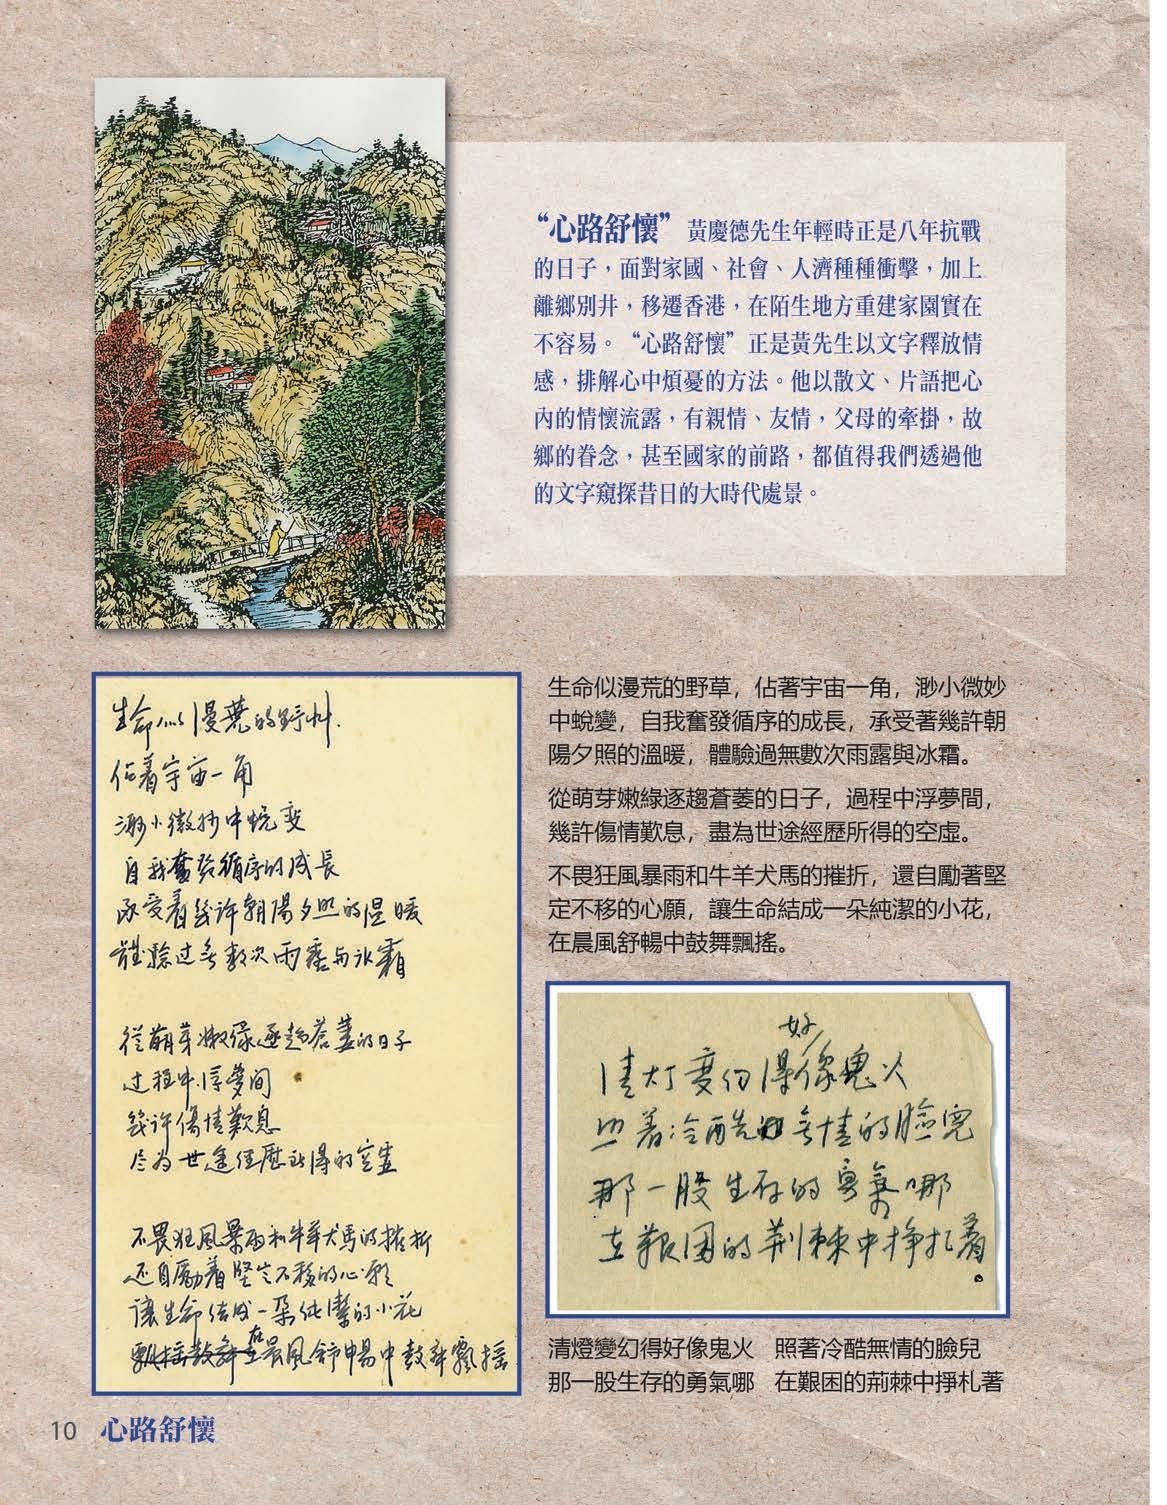 “心路舒懷” 黃慶德先生年輕時正是八年抗戰
的日子，面對家國、社會、人濟種種衝擊，加上
離鄉別井，移遷香港，在陌生地方重建家園實在
不容易。“心路舒懷” 正是黃先生以文字釋放情
感，排解心中煩憂的方法。他以散文、片語把心
內的情懷流露，有親情、友情，父母的牽掛，故
鄉的眷念，甚至國家的前路，都值得我們透過他
的文字窺探昔日的大時代處景。
生命似漫荒的野艸.
佔着宇宙一角
渺小微妙中蛻变
自我奮發循序的成長
承受着幾許朝陽夕照的温暖
體驗过無數次雨露与冰霜
從萌芽嫩绿逐趋苍萎的日子
过程中浮夢间
幾许傷情歎息
尽为世途經歷所得的空虛
不畏狂風暴雨和牛羊犬馬的摧折
还自勵着堅定不移的心願
讓生命结成一朵纯潔的小花
在晨風舒暢中鼓舞飄摇
生命似漫荒的野草，佔著宇宙一角，渺小微妙
中蛻變，自我奮發循序的成長，承受著幾許朝
陽夕照的溫暖，體驗過無數次雨露與冰霜。
從萌芽嫩綠逐趨蒼萎的日子，過程中浮夢間，
幾許傷情歎息，盡為世途經歷所得的空虛。
不畏狂風暴雨和牛羊犬馬的摧折，還自勵著堅
定不移的心願，讓生命結成一朵純潔的小花，
在晨風舒暢中鼓舞飄搖。
清灯变幻得好像鬼火
照着冷酷無情的臉兒
那一股生存的勇氣哪
在艱困的荆棘中掙扎着。
清燈變幻得好像鬼火　照著冷酷無情的臉兒
那一股生存的勇氣哪　在艱困的荊棘中掙札著
10 心路舒懷